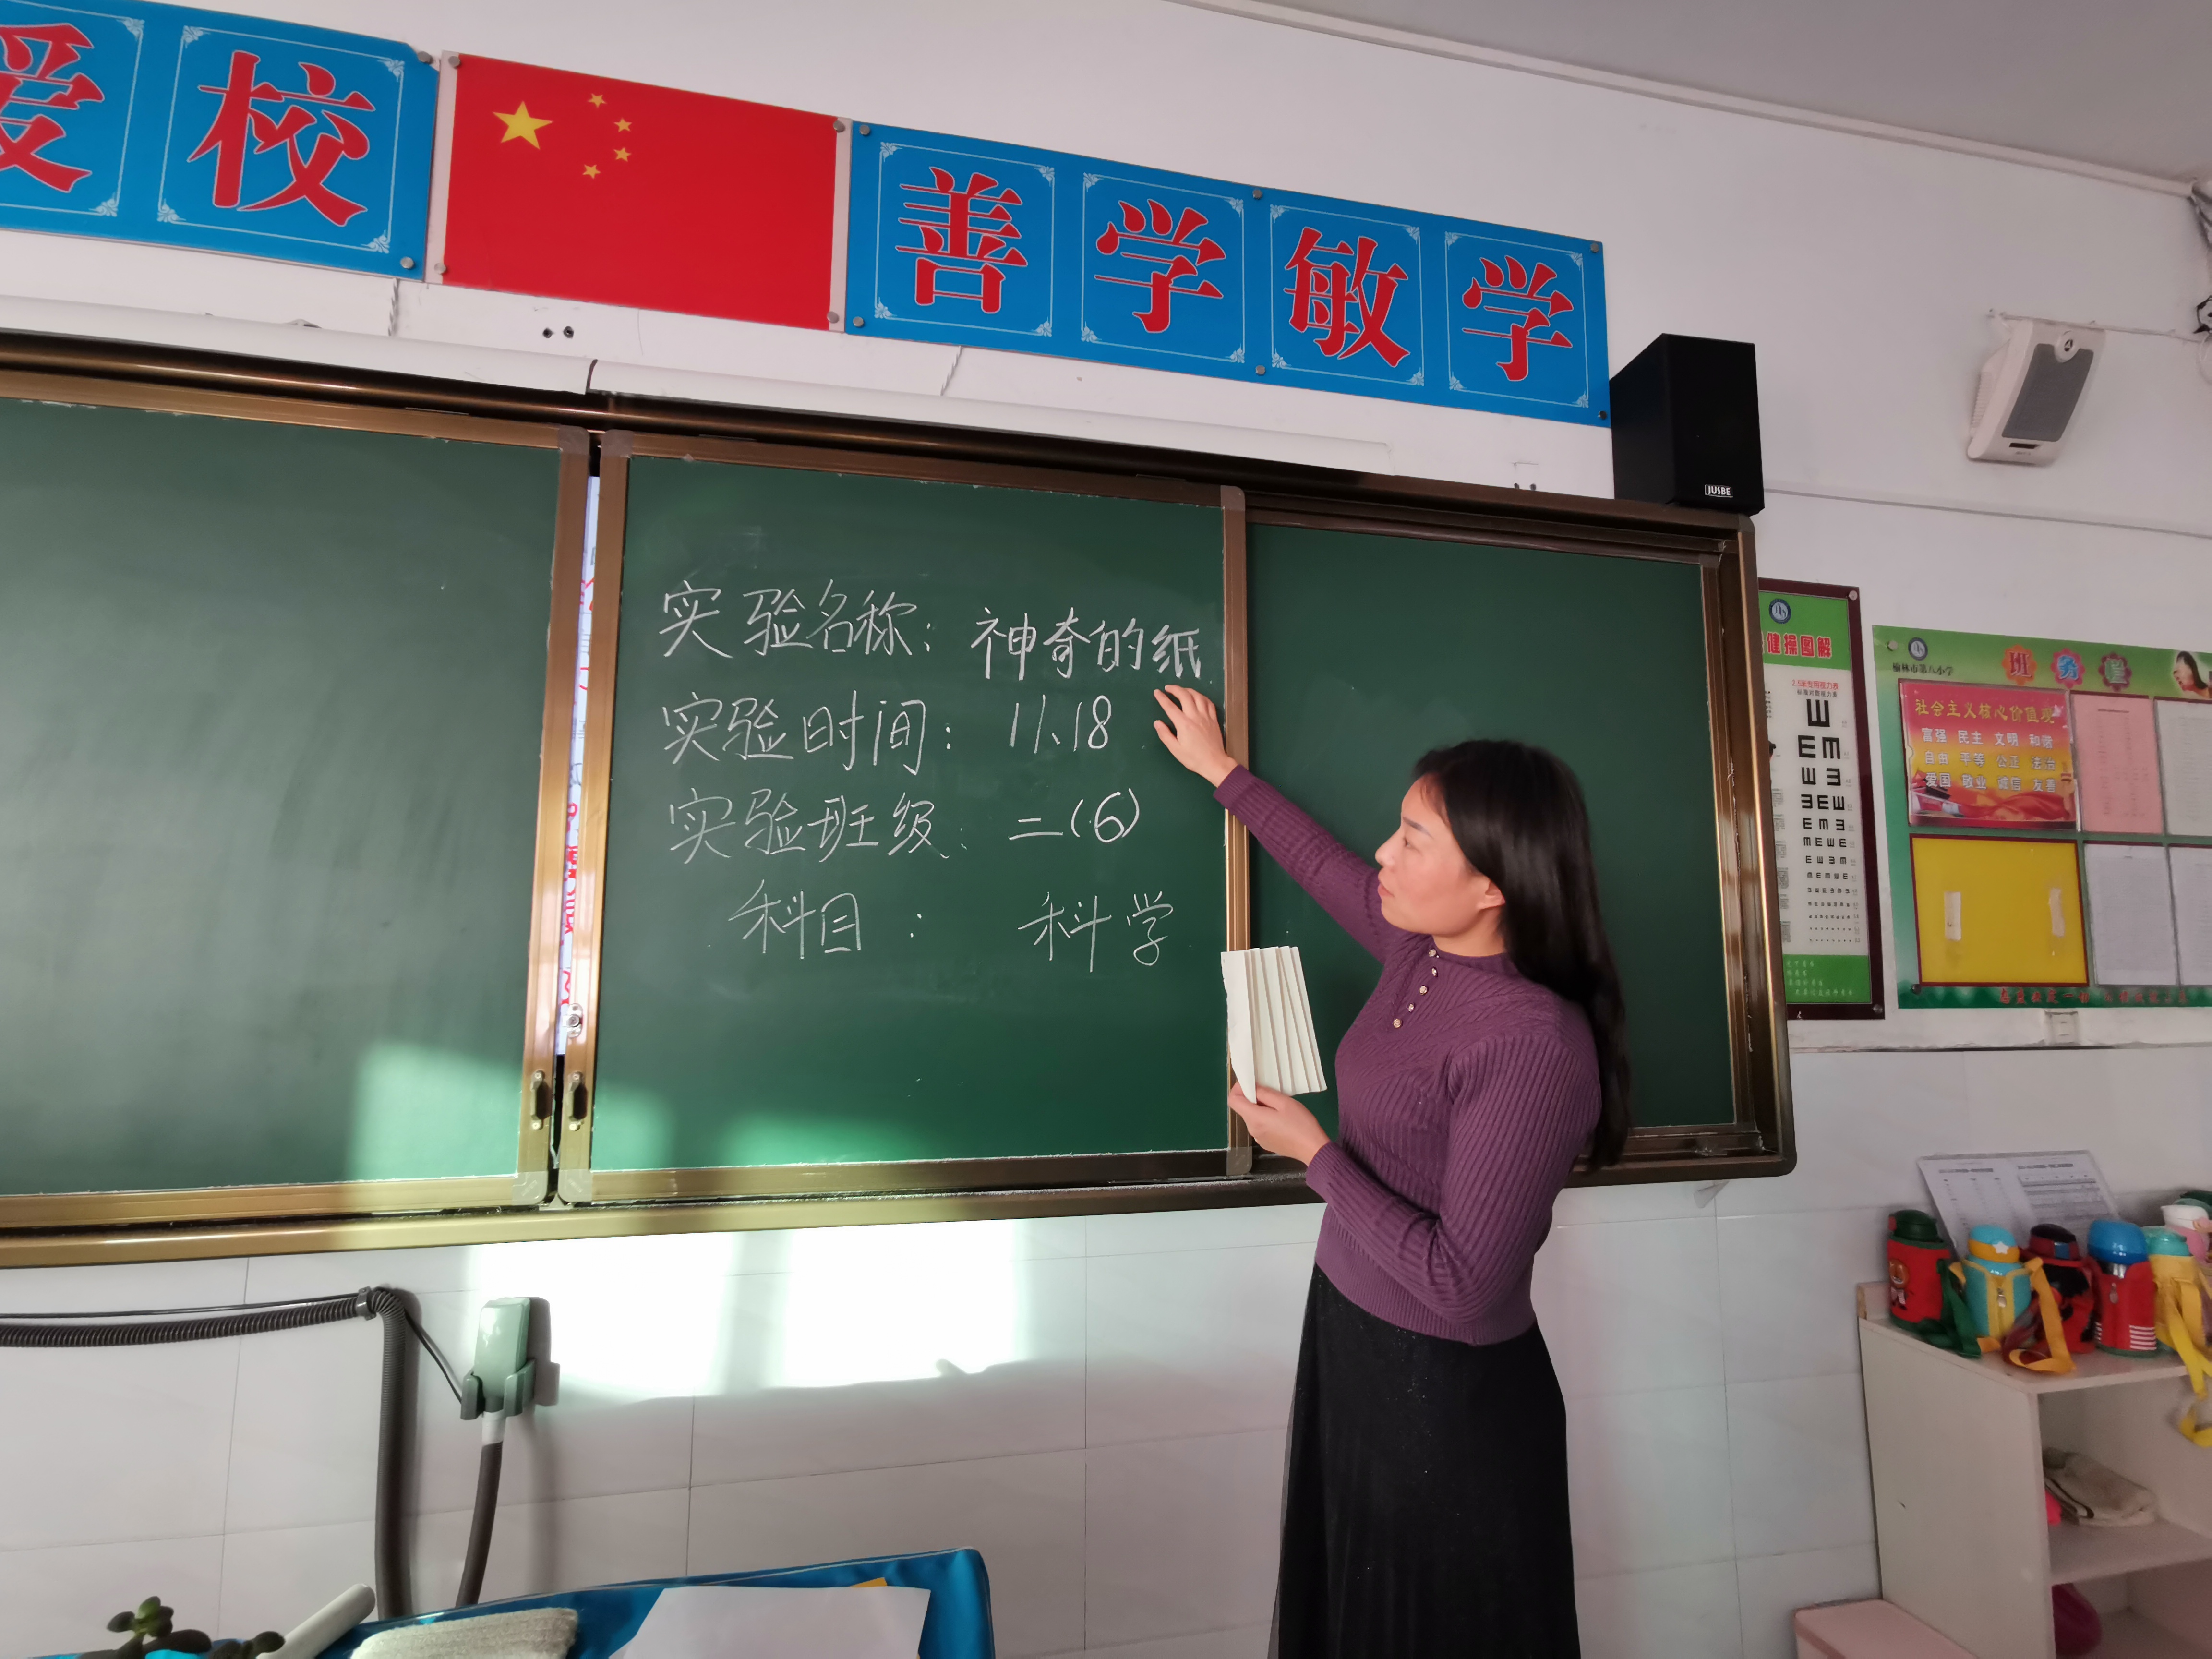 爱校
善学敏学
JUSBE
实验名称：神奇的纸
实验时间：11、18
实验班级：二（6）
科目：科学
健操图解
榆林市第八小学
班务栏
社会主义核心价值观
富强 民主 文明 和谐
自由 平等 公正 法治
爱国 敬业 诚信 友善